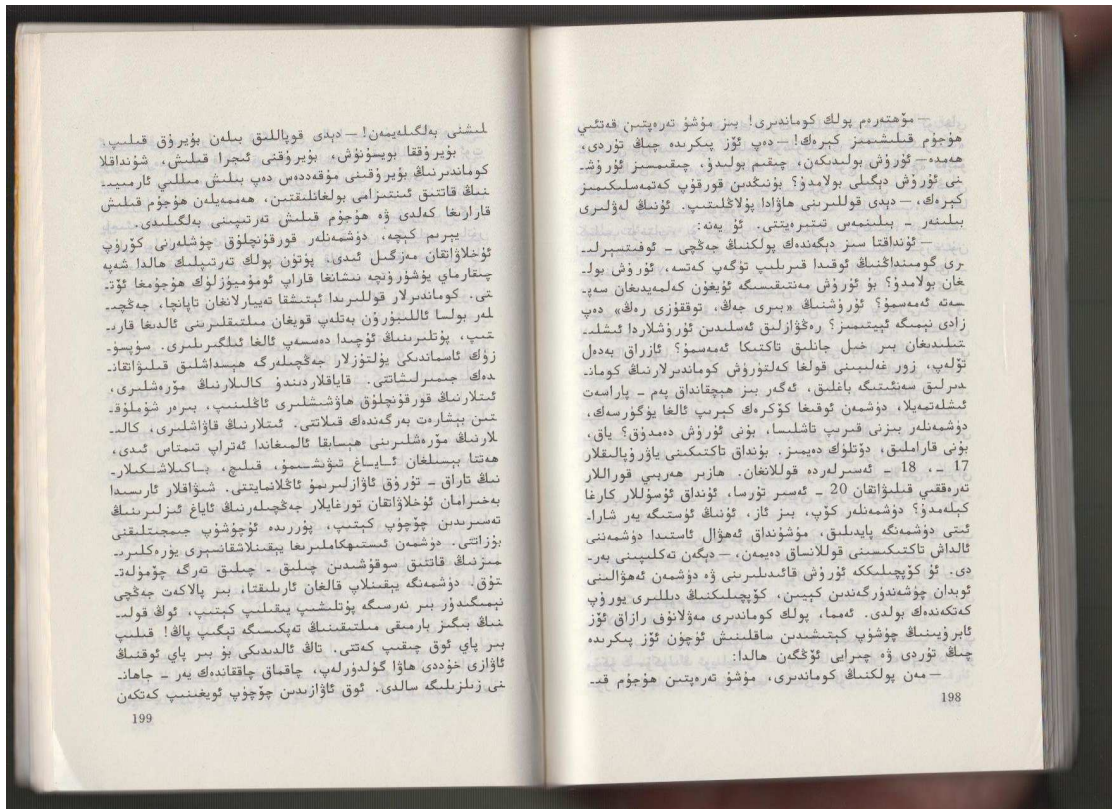 — مۆھتەرەم پولك كوماندىرى! بىز مۇشۇ تەرەپتىن قەتئىي
ھۇجۇم قىلىشىمىز كېرەك! — دەپ ئۆز پىكرىدە چىڭ تۇردى،
ھەمدە — ئۇرۇش بولىدىكەن، چىقىم بولىدۇ، چىقىمسىز ئۇرۇش‍ـ
نى ئۇرۇش دېگىلى بولامدۇ؟ بۇنىڭدىن قورقۇپ كەتمەسلىكىمىز
كېرەك، — دېدى قوللىرىنى ھاۋادا پۇلاڭلىتىپ. ئۇنىڭ لەۋلىرى
بىلىنەر ـ بىلىنمەس تىتىرەيتتى. ئۇ يەنە:
— ئۇنداقتا سىز دېگەندەك پولكنىڭ جەڭچى ـ ئوفىتسېرلى‍ـ
رى گومىنداڭنىڭ ئوقىدا قىرىلىپ تۈگەپ كەتسە، ئۇرۇش بول‍ـ
غان بولامدۇ؟ بۇ ئۇرۇش مەنتىقىسىگە ئۇيغۇن كەلمەيدىغان سەپ‍ـ
سەتە ئەمەسمۇ؟ ئۇرۇشنىڭ «بىرى جەڭ، توققۇزى رەڭ» دەپ
زادى نېمىگە ئېيتىمىز؟ رەڭۋازلىق ئەسلىدىن ئۇرۇشلاردا ئىشلى‍ـ
تىلىدىغان بىر خىل جانلىق تاكتىكا ئەمەسمۇ؟ ئازراق بەدەل
تۆلەپ، زور غەلىبىنى قولغا كەلتۈرۈش كوماندىرلارنىڭ كومان‍ـ
دىرلىق سەنئىتىگە باغلىق، ئەگەر بىز ھېچقانداق پەم ـ پاراسەت
ئىشلەتمەيلا، دۈشمەن ئوقىغا كۆكرەك كېرىپ ئالغا يۈگۈرسەك،
دۈشمەنلەر بىزنى قىرىپ تاشلىسا، بۇنى ئۇرۇش دەمدۇق؟ ياق،
بۇنى قارامللىق، دۆتلۈك دەيمىز. بۇنداق تاكتىكىنى ياۋرۇپالىقلار
17 ـ، 18 ـ ئەسىرلەردە قوللانغان. ھازىر ھەربىي قوراللار
تەرەققىي قىلىۋاتقان 20 ـ ئەسىر تۇرسا، ئۇنداق ئۇسۇللار كارغا
كېلەمدۇ؟ دۈشمەنلەر كۆپ، بىز ئاز، ئۇنىڭ ئۈستىگە يەر شارا‍ـ
ئىتى دۈشمەنگە پايدىلىق، مۇشۇنداق ئەھۋال ئاستىدا دۈشمەننى
ئالداش تاكتىكىسىنى قوللانساق دەيمەن، — دېگەن تەكلىپىنى بەر‍ـ
دى. ئۇ كۆپچىلىككە ئۇرۇش قائىدىلىرىنى ۋە دۈشمەن ئەھۋالىنى
ئوبدان چۈشەندۈرگەندىن كېيىن، كۆپچىلىكنىڭ دىللىرى يورۇپ
كەتكەندەك بولدى. ئەمما، پولك كوماندىرى مەۋلانۇف رازاق ئۆز
ئابرۇيىنىڭ چۈشۈپ كېتىشىدىن ساقلىنىش ئۈچۈن ئۆز پىكرىدە
چىڭ تۇردى ۋە چىرايى ئۆڭگەن ھالدا:
— مەن پولكنىڭ كوماندىرى، مۇشۇ تەرەپتىن ھۇجۇم قى‍ـ
198
لىشنى بەلگىلەيمەن! — دېدى قوپاللىق بىلەن بۇيرۇق قىلىپ.
بۇيرۇققا بويسۇنۇش، بۇيرۇقنى ئىجرا قىلىش، شۇنداقلا
كوماندىرنىڭ بۇيرۇقىنى مۇقەددەس دەپ بىلىش مىللىي ئارمىيى‍ـ
نىڭ قاتتىق ئىنتىزامى بولغانلىقتىن، ھەممەيلەن ھۇجۇم قىلىش
قارارىغا كەلدى ۋە ھۇجۇم قىلىش تەرتىپىنى بەلگىلىدى.
يېرىم كېچە، دۈشمەنلەر قورقۇنچلۇق چۈشلەرنى كۆرۈپ
ئۇخلاۋاتقان مەزگىل ئىدى. پۈتۈن پولك تەرتىپلىك ھالدا شەپە
چىقارماي يوشۇرۇنچە نىشانغا قاراپ ئومۇميۈزلۈك ھۇجۇمغا ئۆت‍ـ
تى. كوماندىرلار قوللىرىدا ئېتىشقا تەييارلانغان تاپانچا، جەڭچى‍ـ
لەر بولسا ئاللىبۇرۇن بەتلەپ قويغان مىلتىقلىرىنى ئالدىغا قارى‍ـ
تىپ، پۇتلىرىنىڭ ئۇچىدا دەسسەپ ئالغا ئىلگىرىلىرى. سۈپسۈ‍ـ
زۈك ئاسماندىكى يۇلتۇزلار جەڭچىلەرگە ھېسداشلىق قىلىۋاتقان‍ـ
دەك جىمىرلىشاتتى. قاياقلاردىندۇ كالىلارنىڭ مۆرەشلىرى،
ئىتلارنىڭ قورقۇنچلۇق ھاۋشىشلىرى ئاڭلىنىپ، بىرەر شۇملۇق‍ـ
تىن بېشارەت بەرگەندەك قىلاتتى. ئىتلارنىڭ قاۋاشلىرى، كالى‍ـ
لارنىڭ مۆرەشلىرىنى ھېسابقا ئالمىغاندا ئەتراپ تىمتاس ئىدى،
ھەتتا بېسىلغان ئاياغ تىۋىشىمۇ، قىلىچ، باكلاشكىلار‍ـ
نىڭ تاراق ـ تۇرۇق ئاۋازلىرىمۇ ئاڭلانمايتتى. شىۋاقلار ئارىسىدا
بەخىرامان ئۇخلاۋاتقان تورغايلار جەڭچىلەرنىڭ ئاياغ ئىزلىرىنىڭ
تەسىرىدىن چۆچۈپ كېتىپ، پۇررىدە ئۇچۇشۇپ جىمجىتلىقنى
بۇزاتتى. دۈشمەن ئىستىھكاملىرىغا يېقىنلاشقانسېرى يۈرەكلىرى‍ـ
مىزنىڭ قاتتىق سوقۇشىدىن چىلىق ـ چىلىق تەرگە چۆمۈلەت‍ـ
تۇق. دۈشمەنگە يېقىنلاپ قالغان ئارىلىقتا، بىر پالاكەت جەڭچى
نېمىگىدۇر بىر نەرسىگە پۇتلىشىپ يىقىلىپ كېتىپ، ئوڭ قولى‍ـ
نىڭ بىگىز بارمىقى مىلتىقىنىڭ تەپكىسىگە تېگىپ پاڭ! قىلىپ
بىر پاي ئوق چىقىپ كەتتى. تاڭ ئالدىدىكى بۇ بىر پاي ئوقنىڭ
ئاۋازى خۇددى ھاۋا گۈلدۈرلەپ، چاقماق چاققاندەك يەر ـ جاھان‍ـ
نى زىلزىلىگە سالدى. ئوق ئاۋازىدىن چۆچۈپ ئويغىنىپ كەتكەن
199